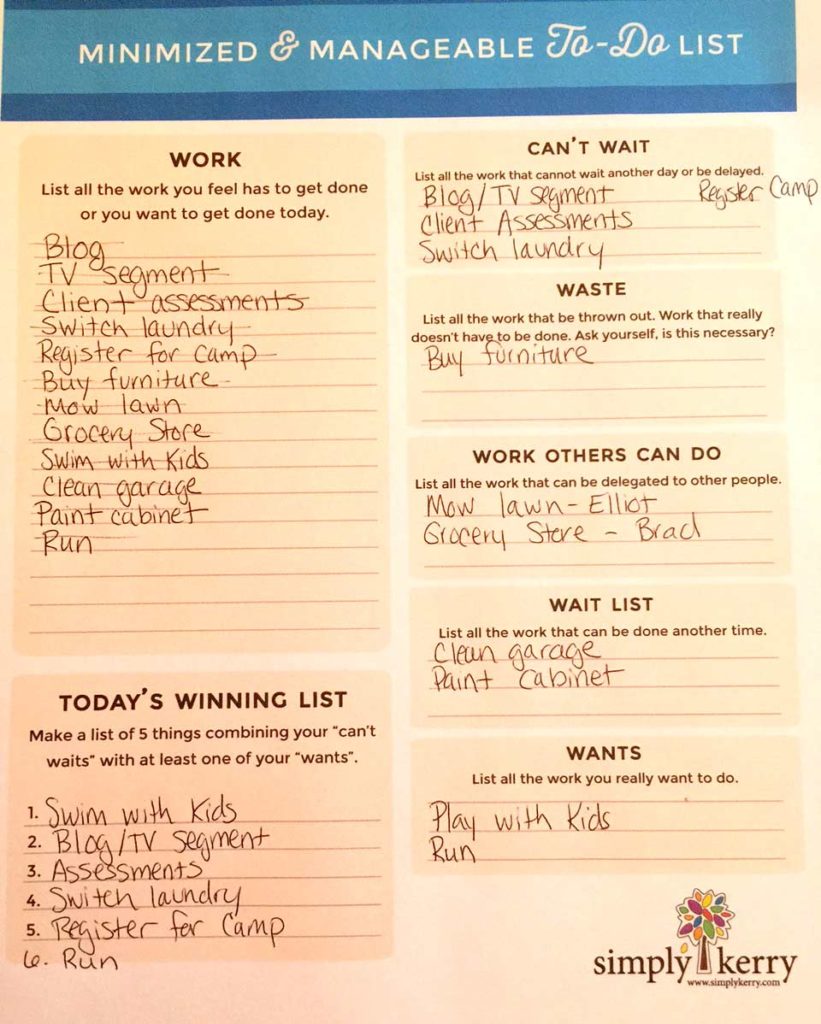 MINIMIZED & MANAGEABLE To-Do LIST
WORK
List all the work you feel has to get done
or you want to get done today.
Blog
TV segment
Client assessments
Switch laundry
Register for Camp
Buy furniture
Mow lawn
Grocery Store
Swim with Kids
Clean garage
Paint cabinet
Run
TODAY'S WINNING LIST
Make a list of 5 things combining your "can't
waits" with at least one of your "wants".
1. Swim with Kids
2. Blog/TV segment
3. Assessments
4. Switch laundry
5. Register for Camp
6. Run
CAN'T WAIT
List all the work that cannot wait another day or be delayed.
Blog/TV segment Register Camp
Client Assessments
Switch laundry
WASTE
List all the work that be thrown out. Work that really
doesn't have to be done. Ask yourself, is this necessary?
Buy furniture
WORK OTHERS CAN DO
List all the work that can be delegated to other people.
Mow lawn - Elliot
Grocery Store - Brad
WAIT LIST
List all the work that can be done another time.
Clean garage
Paint cabinet
WANTS
List all the work you really want to do.
Play with Kids
Run
simply kerry
www.simplykerry.com